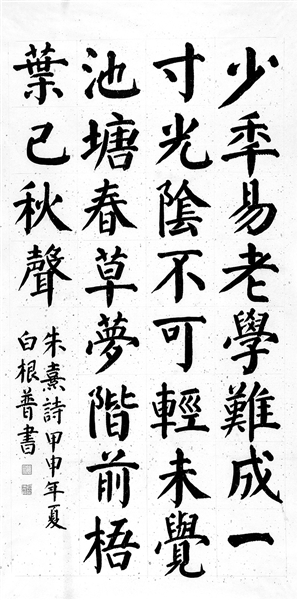 少秊易老學難成一
寸光陰不可輕未覺
池塘春草夢階前梧
葉已秋聲
朱熹詩甲申年夏
白根普書